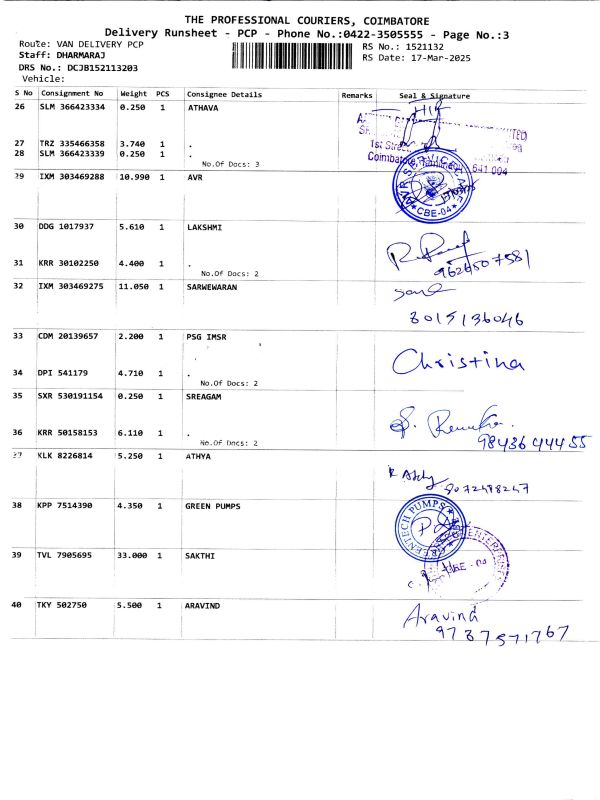 THE PROFESSIONAL COURIERS, COIMBATORE
Delivery Runsheet - PCP - Phone No.:0422-3505555 - Page No.:3
Route: VAN DELIVERY PCP RS No.: 1521132
Staff: DHARMARAJ RS Date: 17-Mar-2025
DRS No.: DCJB152113203
Vehicle:
S No Consignment No Weight PCS Consignee Details Remarks Seal & Signature
26 SLM 366423334 0.250 1 ATHAVA
27 TRZ 335466358 3.740 1 .
28 SLM 366423339 0.250 1 .
No.Of Docs: 3
1st Street
Coimbatore
641 004
29 IXM 303469288 10.990 1 AVR
CBE-04
30 DDG 1017937 5.610 1 LAKSHMI
31 KRR 30102250 4.400 1 .
No.Of Docs: 2
9626507581
32 IXM 303469275 11.050 1 SARWEWARAN
8015136046
33 CDM 20139657 2.200 1 PSG IMSR
.
Christina
34 DPI 541179 4.710 1 .
No.Of Docs: 2
35 SXR 530191154 0.250 1 SREAGAM
36 KRR 50158153 6.110 1 .
No.Of Docs: 2
9843644455
37 KLK 8226814 5.250 1 ATHYA
9072498247
38 KPP 7514390 4.350 1 GREEN PUMPS
GREENTECH PUMPS
39 TVL 7905695 33.000 1 SAKTHI
CBE - 04
40 TKY 502750 5.500 1 ARAVIND
Aravind
9737571767